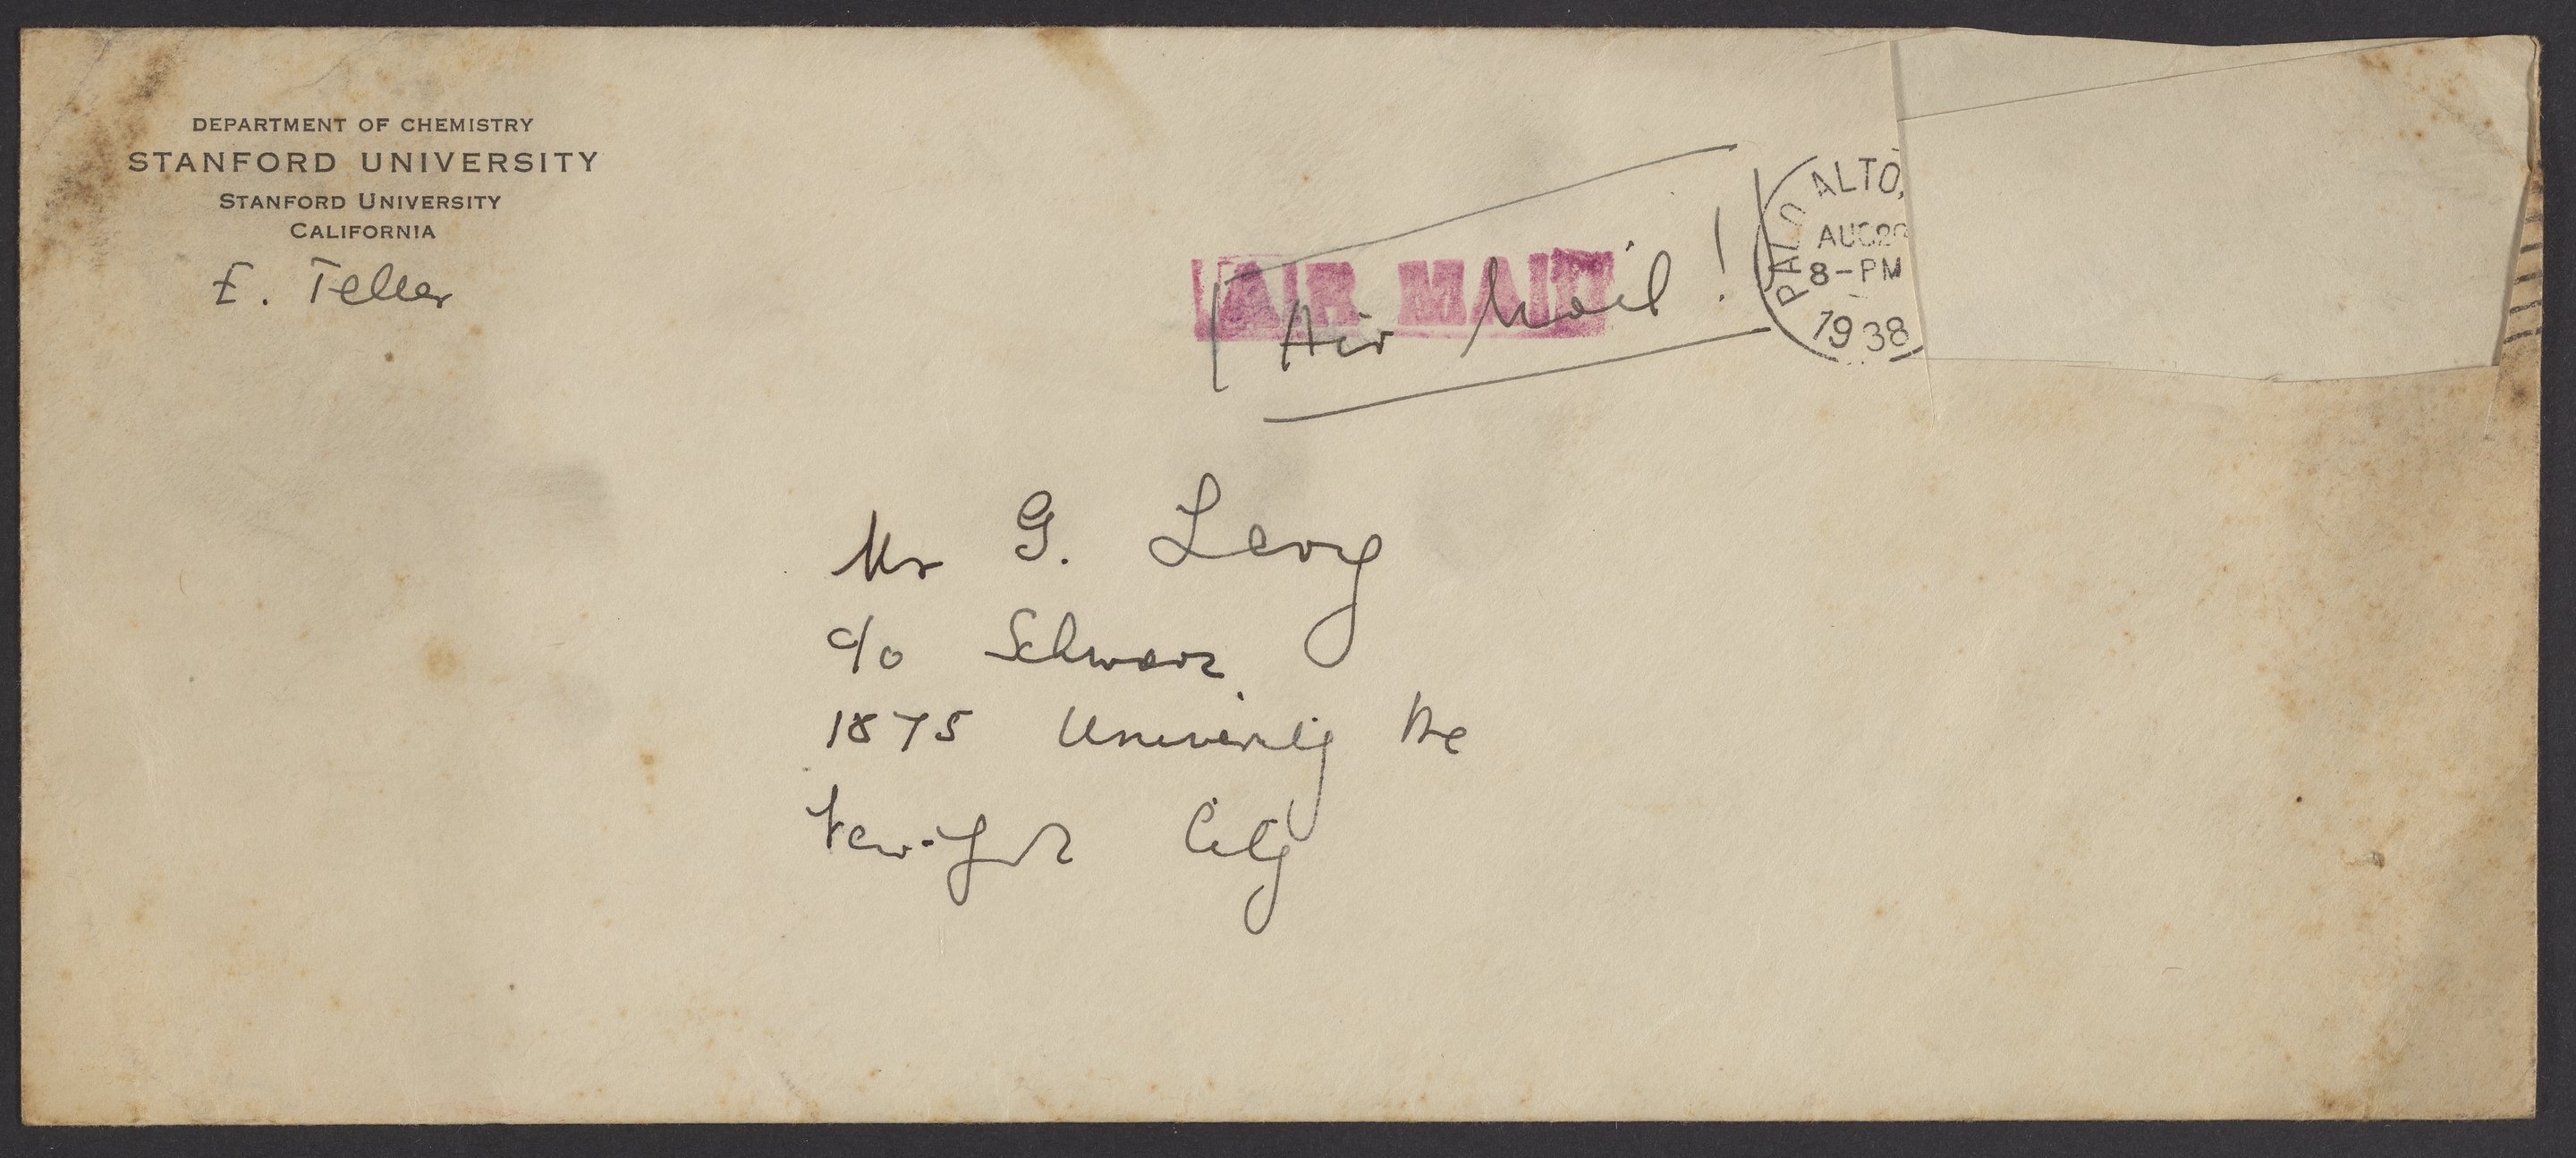 DEPARTMENT OF CHEMISTRY
STANFORD UNIVERSITY
STANFORD UNIVERSITY
CALIFORNIA
E. Teller
AIR MAIL
Air Mail!
PALO ALTO,
AUG
8-PM
1938
Mr G. Levy
c/o Schwarz
1875 University Ave
New-York City